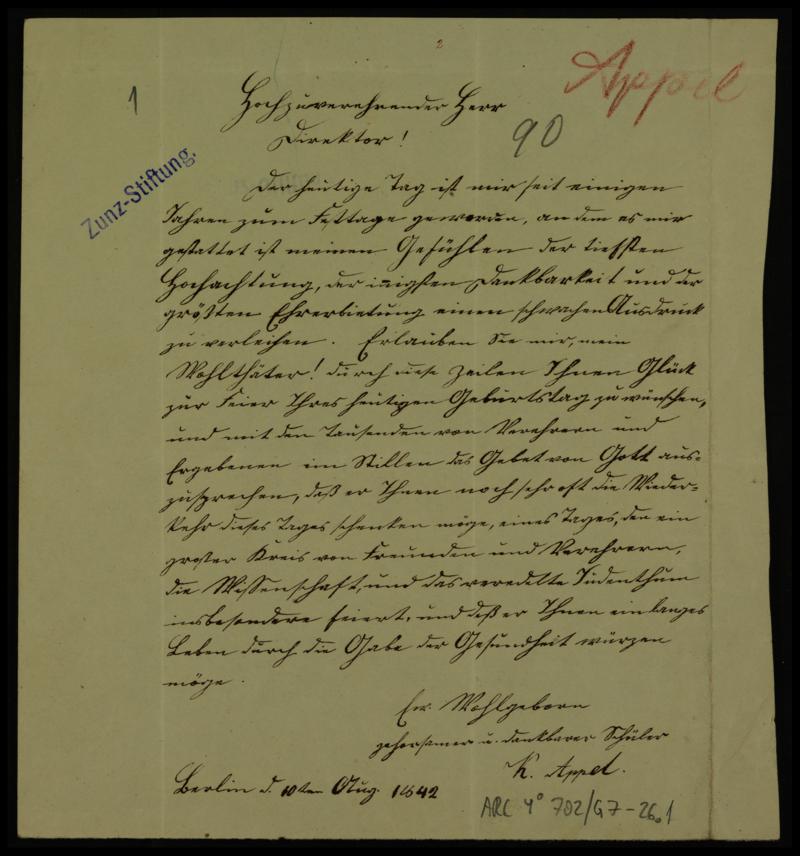 2
Appel
1
Hochzuverehrender Herr
Direktor!
90
Zunz-Stiftung.
Der heutige Tag ist mir seit einigen
Jahren zum Festtage geworden, an dem es mir
gestattet ist meinen Gefühlen der tiefsten
Hochachtung, der innigsten Dankbarkeit und der
größten Ehrerbietung einen schwachen Ausdruck
zu verleihen. Erlauben Sie mir, mein
Wohlthäter! durch diese Zeilen Ihnen Glück
zur Feier Ihres heutigen Geburtstag zu wünschen,
und mit den Tausenden von Verehrern und
Ergebenen im Stillen das Gebet von Gott aus-
zusprechen, daß er Ihnen noch sehr oft die Wieder-
kehr dieses Tages schenken möge, eines Tages, den ein
großer Kreis von Freunden und Verehrern,
die Wissenschaft, und das veredelte Judenthum
insbesondere feiert, und daß er Ihnen ein langes
Leben durch die Gabe der Gesundheit würzen
möge.
Ew. Wohlgeborn
gehorsamer u. dankbarer Schüler
K. Appel.
Berlin d. 10ten Aug. 1842
ARC 4° 792/G7-26.1